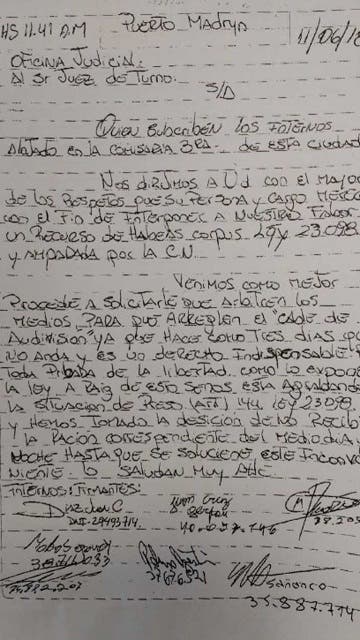 HS 11.41 A.M Puerto Madryn 11/06/18
Oficina Judicial.
Al Sr Juez de Turno.
S/D
Quien Subscriben los Internos
Alojado en la Comisaria 3ra de esta Ciudad
Nos dirijimos A Ud con el Mayor
de los Respetos que su Persona y Cargo Merece
con el Fin de Interponer A Nuestro Favor
un Recurso de Habeas Corpus Ley 23.098
y Amparada por la C.N.
Venimos como Mejor
Procede A Solicitarle que Arbitren los
Medios. Para que Arreglen el "Cable de
Audivision" ya que hace como tres dias que
no Anda y es un derecho Indispensable
Toda Pribada de la libertad como lo expone
la ley. A Raiz de esto se nos esta Agravando
la Situacion de Preso. (Art) 144 Ley 23098
y Hemos Tomado la desicion de No Recibir
la Racion correspondiente del Mediodia
Noche Hasta que se Solucione este Inconve
niente lo Saludan Muy Atte
Internos: Firmantes:
Diaz
DNI-29493714. 40.057.746